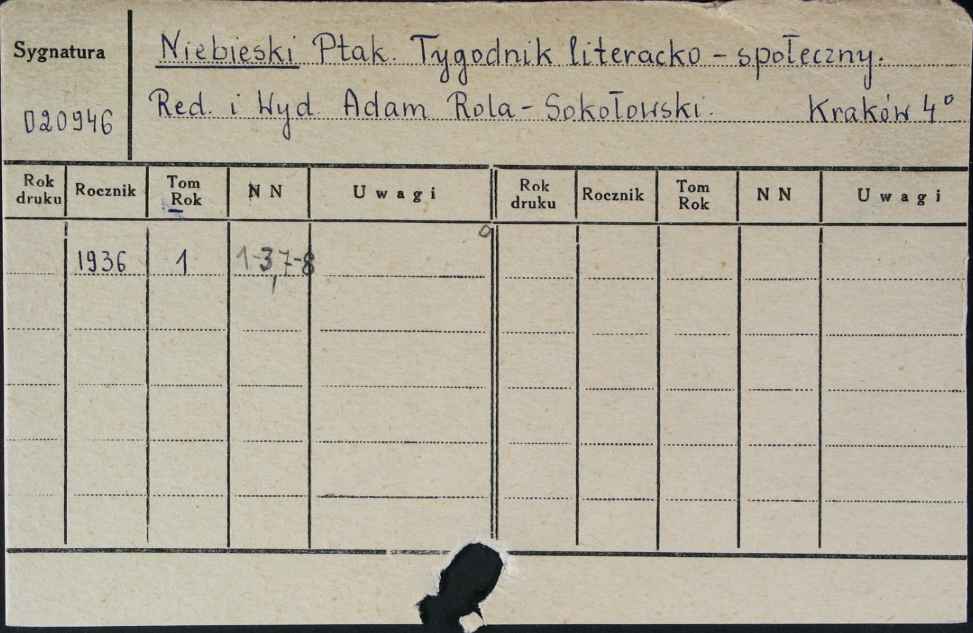 Sygnatura
020946
Niebieski Ptak. Tygodnik literacko-społeczny.
Red. i Wyd. Adam Rola-Sokołowski. Kraków 4°
Rok druku Rocznik Tom Rok N N Uwagi Rok druku Rocznik Tom Rok N N Uwagi
1936 1 1-3,7-8